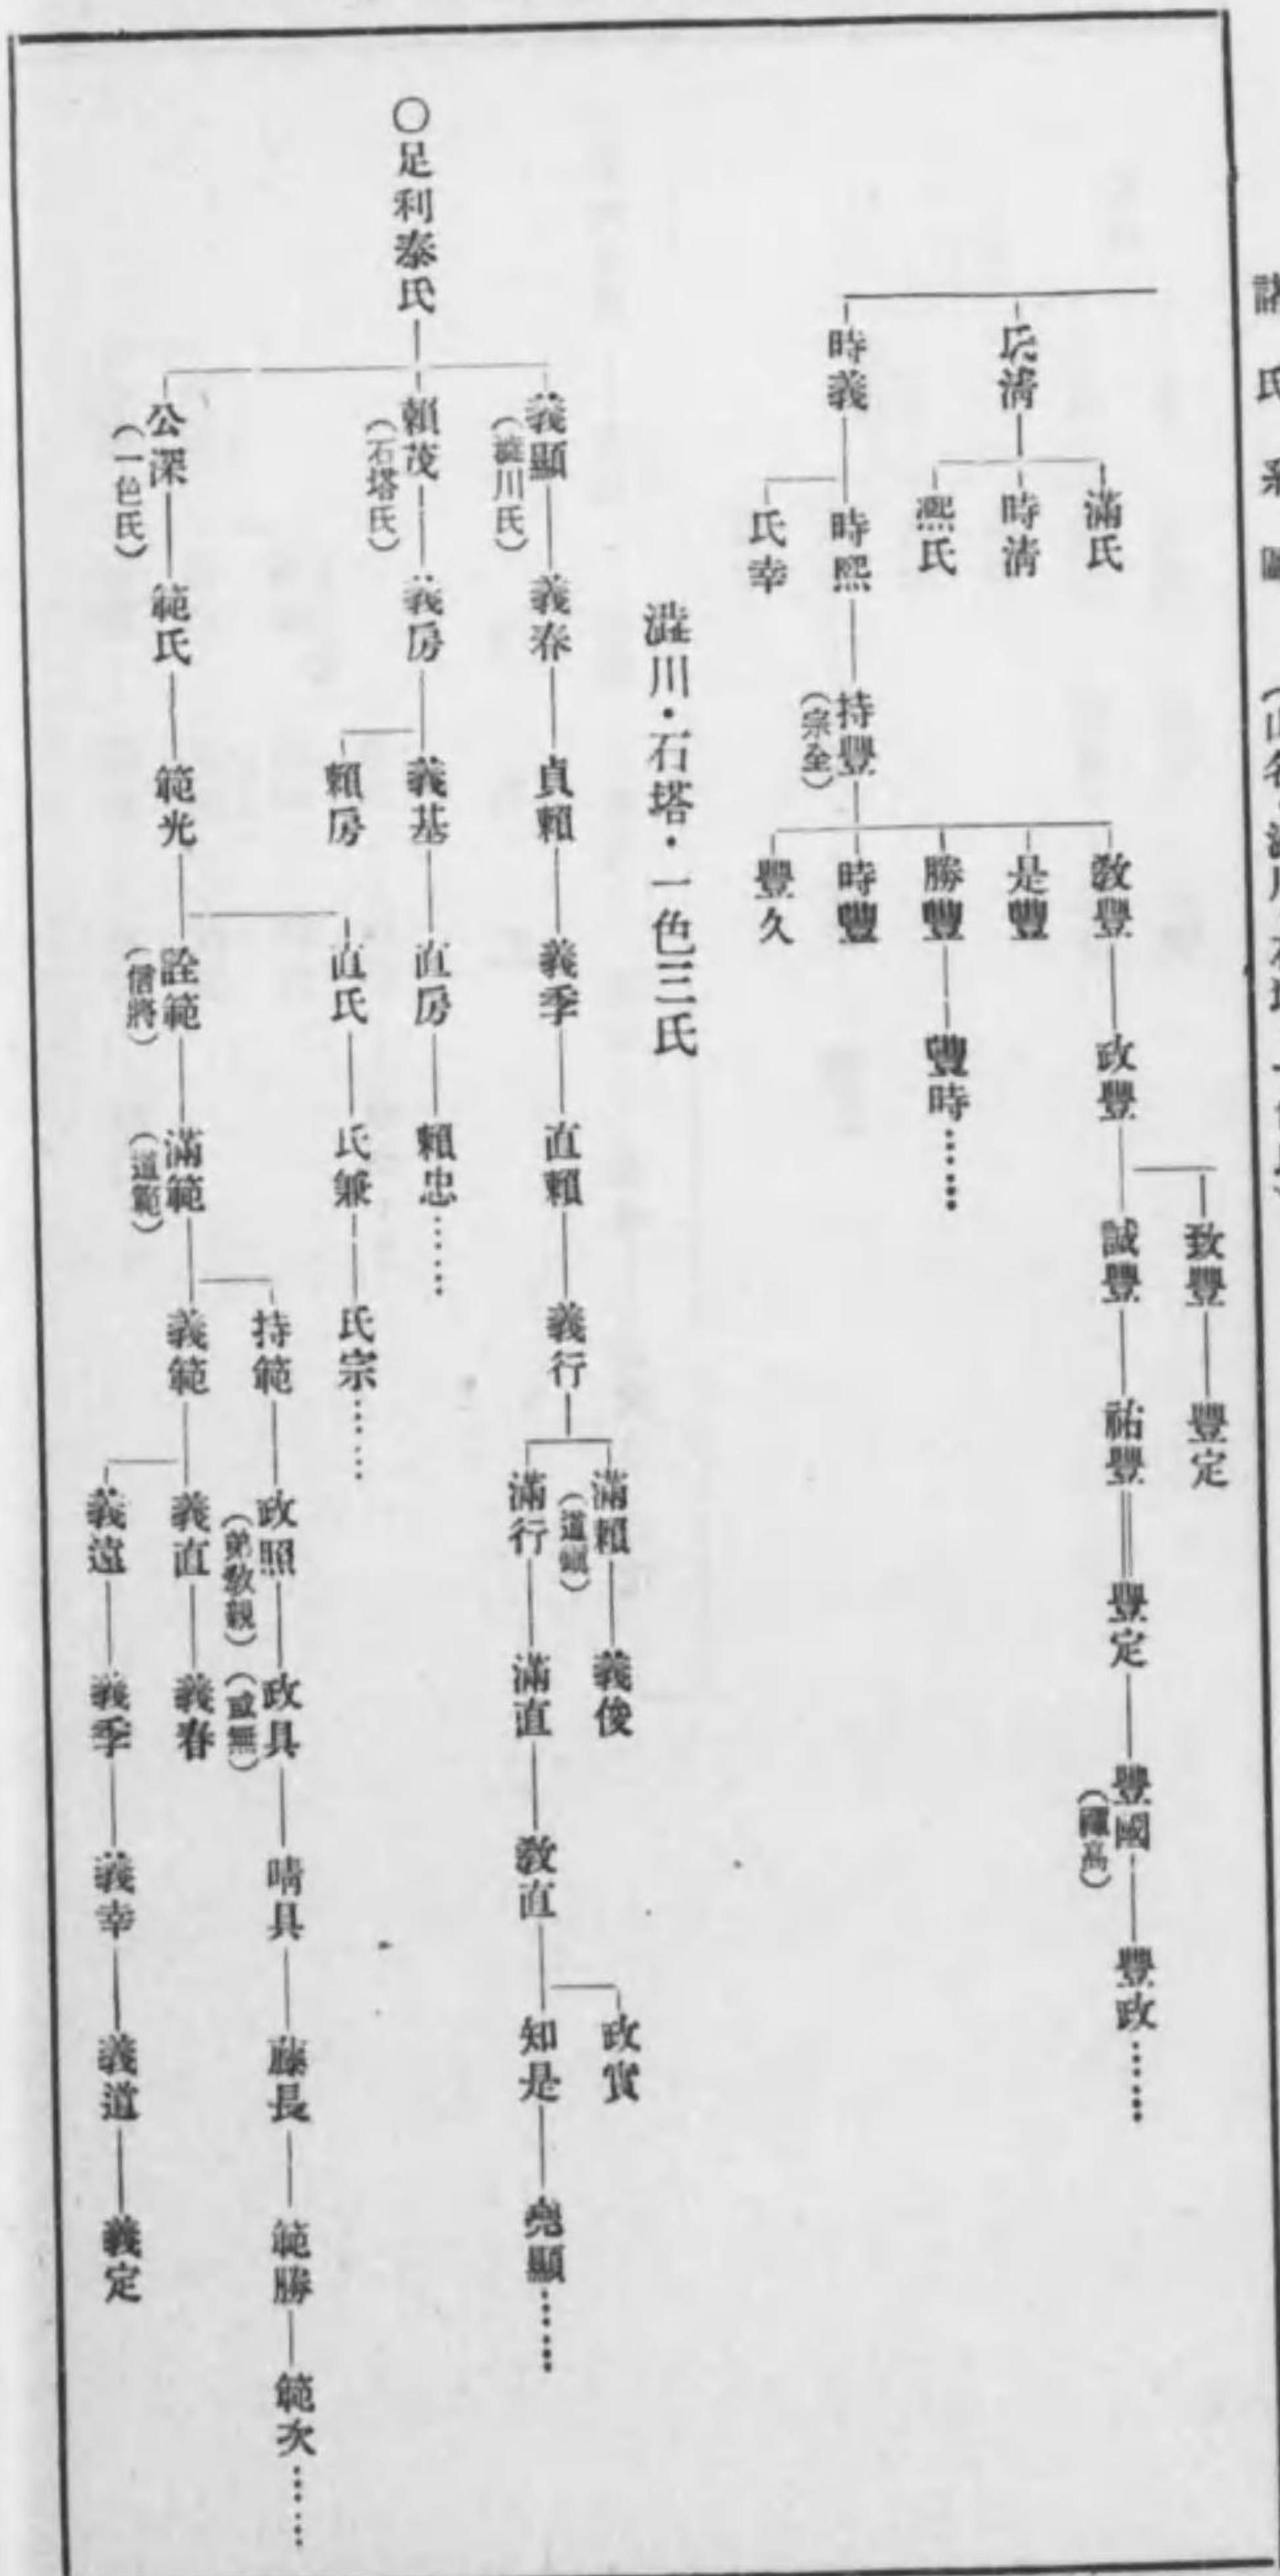 諸氏系圖
氏清
滿氏
時清
熙氏
時義
時熙
氏幸
持豐
(宗全)
敎豐
是豐
勝豐
時豐
豐久
政豐
豐時……
致豐
豐定
誠豐
祐豐
豐定
豐國
(禪高)
豐政……
澁川・石塔・一色三氏
〇足利泰氏
義顯
(澁川氏)
義春
貞賴
義季
直賴
義行
滿賴
義俊
滿行
滿直
敎直
政實
知是
堯顯……
賴茂
(石塔氏)
義房
義基
直房
賴忠……
賴房
公深
(一色氏)
範氏
範光
直氏
氏兼
氏宗……
詮範
(信將)
滿範
(道範)
持範
政照
(弟敎親)
政具
(或無)
晴具
藤長
範勝
範次……
義範
義直
義春
義遠
義季
義幸
義道
義定